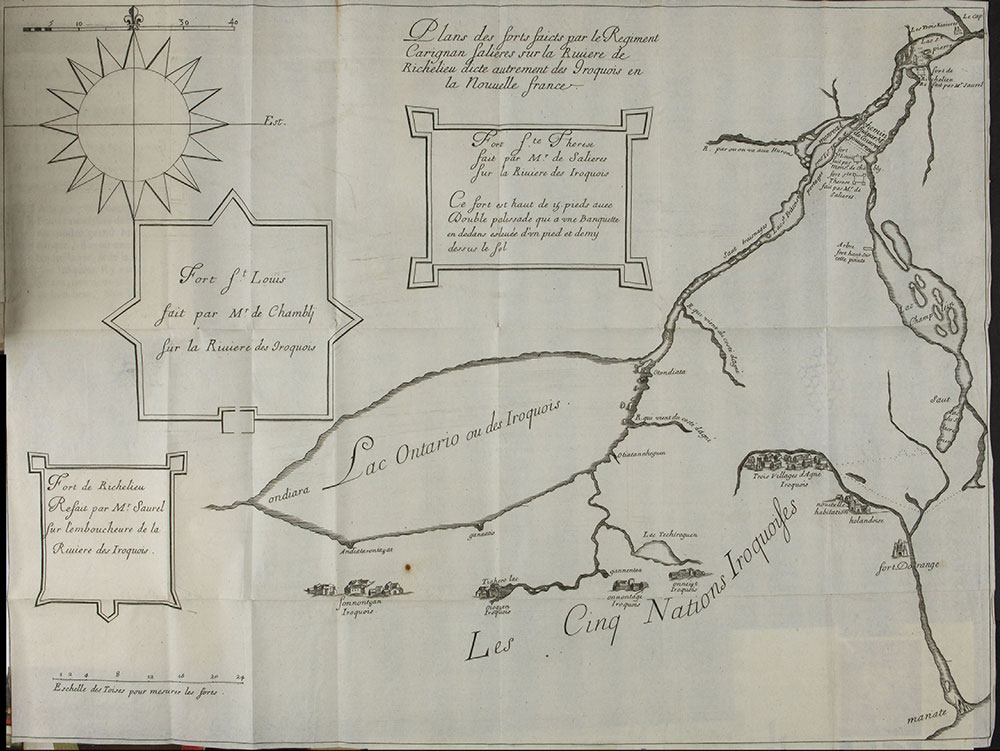 5 10 30 40
Est.
Plans des forts faicts par le Regiment
Carignan Salieres sur la Riuiere de
Richelieu dicte autrement des Iroquois en
la Nouuelle france
Fort S.te Therese
fait par M.r de Salieres
sur la Riuiere des Iroquois
Ce fort est haut de 15 pieds auec
Double palissade qui a vne Banquette
en dedans esleuée d'vn pied et demy
dessus le sol
Fort S.t Louis
fait par M.r de Chambly
sur la Riuiere des Iroquois
Fort de Richelieu
Refait par M.r Saurel
sur l'emboucheure de la
Riuiere des Iroquois .
1 2 4 8 12 16 20 24
Eschelle des Toises pour mesurer les forts .
Le Cap
Les Trois Riuieres
Lac S.t
pierre
fort de
Richelieu
fait par M.r Saurel
R. par ou on va aux Hurons
fort S.te
Therese
fait par M.r de
Salieres
Saut
Arbre
fort haut sur
cette pointe
Lac
Champlain
Saut
R. que vient du costé d'agné
Otondiata
R. qui vient du costé d'agné
Otiatannehguen
Lac Ontario ou des Iroquois .
ondiara
Andiatarontaÿat
Lac Techiroguen
gannentaa
Sonnontȣan
Iroquois
Tichero lac
oioguen
Iroquois
onnontagé
Iroquois
onneiȣt
Iroquois
Les Cinq Nations Iroquoises
Trois Villages d'Agne
Iroquois
nouuelle
habitation
holandoise
fort D'orange
manate